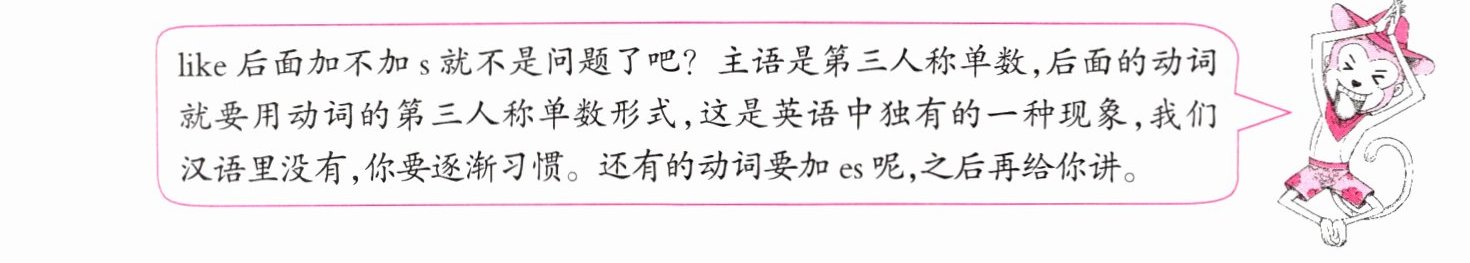 like 后面加不加 s 就不是问题了吧？主语是第三人称单数,后面的动词
就要用动词的第三人称单数形式,这是英语中独有的一种现象,我们
汉语里没有,你要逐渐习惯。还有的动词要加 es 呢,之后再给你讲。